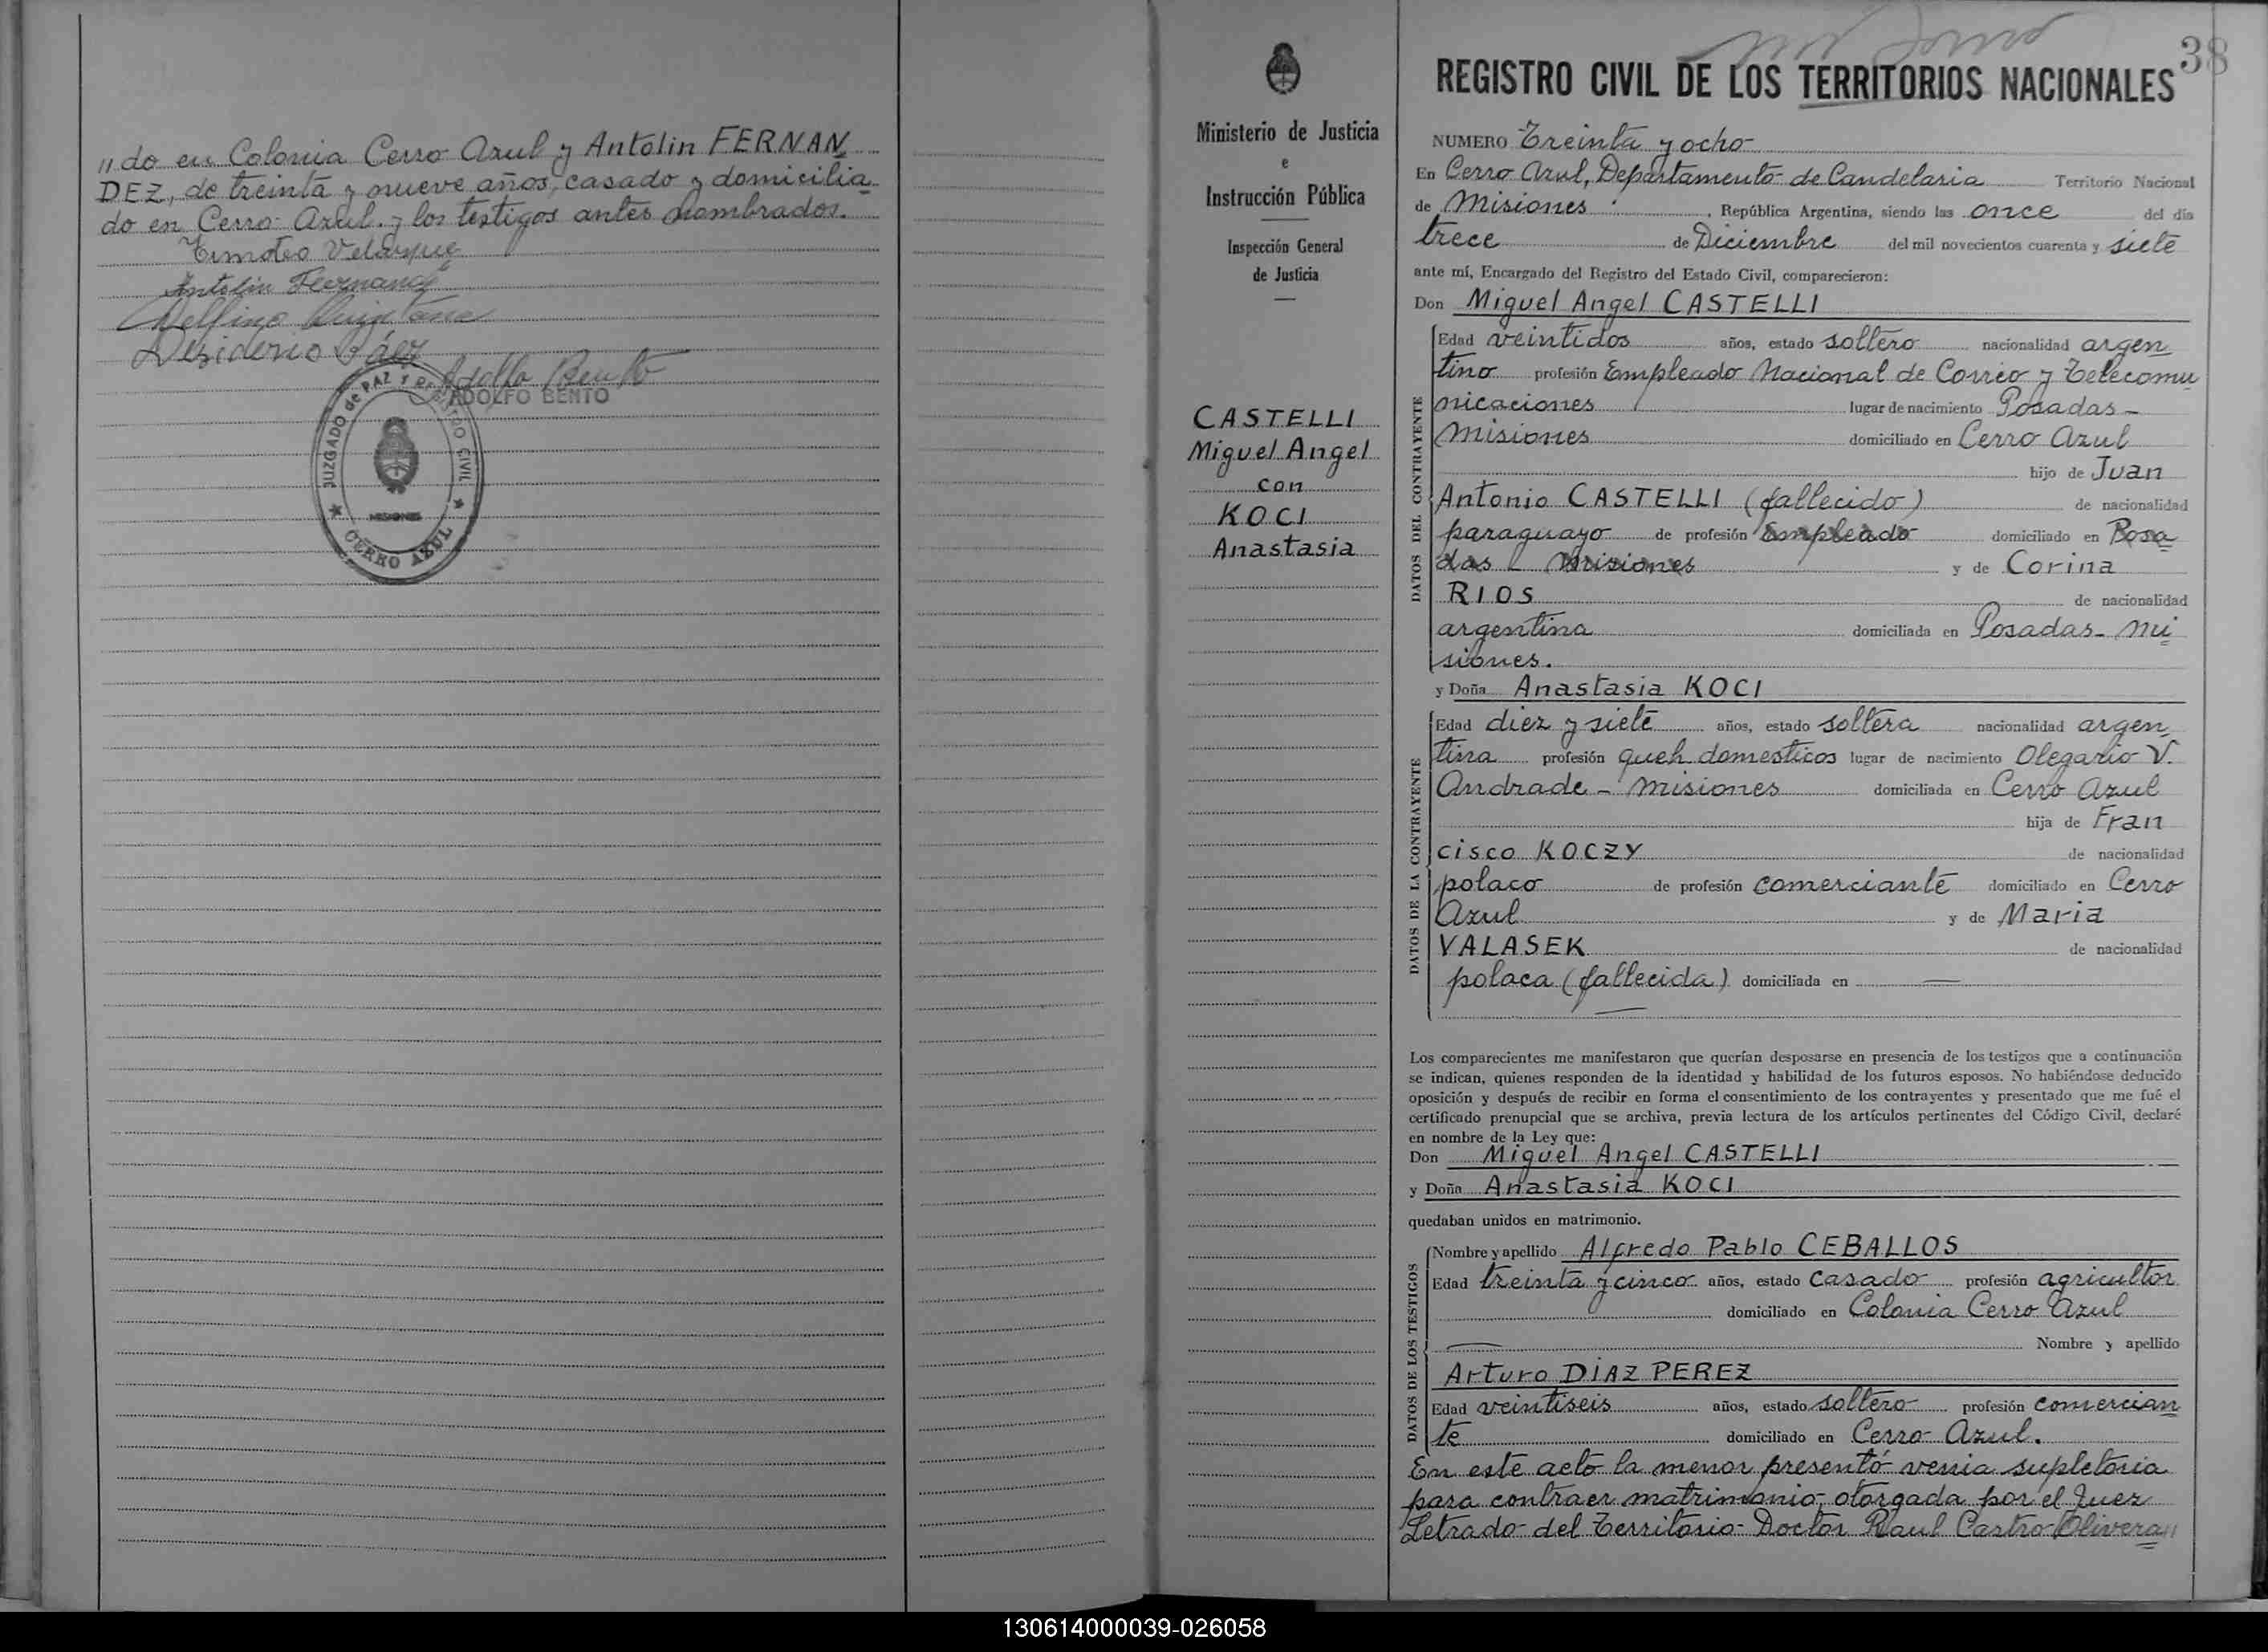 〃do en Colonia Cerro Azul y Antolin FERNAN
DEZ, de treinta y nueve años, casado y domicilia
do en Cerro Azul. y los testigos antes nombrados.
Antolin Fernandez
Delfino Quintana
Desiderio Báez
Adolfo Bento
ADOLFO BENTO
JUZGADO de PAZ Y REGISTRO CIVIL
MISIONES
CERRO AZUL
Ministerio de Justicia
e
Instrucción Pública
Inspección General
de Justicia
CASTELLI
Miguel Angel
con
KOCI
Anastasia
38
REGISTRO CIVIL DE LOS TERRITORIOS NACIONALES
NUMERO Treinta y ocho
En Cerro Azul, Departamento de Candelaria Territorio Nacional
de Misiones , República Argentina, siendo las once del día
trece de Diciembre del mil novecientos cuarenta y siete
ante mí, Encargado del Registro del Estado Civil, comparecieron:
Don Miguel Angel CASTELLI
DATOS DEL CONTRAYENTE
Edad veintidos años, estado soltero nacionalidad argen
tino profesión Empleado Nacional de Correo y Telecomu
nicaciones lugar de nacimiento Posadas-
Misiones domiciliado en Cerro Azul
hijo de Juan
Antonio CASTELLI (fallecido) de nacionalidad
paraguayo de profesión Empleado domiciliado en Posa
das - Misiones y de Corina
RIOS de nacionalidad
argentina domiciliada en Posadas- Mi
siones.
y Doña Anastasia KOCI
DATOS DE LA CONTRAYENTE
Edad diez y siete años, estado soltera nacionalidad argen
tina profesión queh. domesticos lugar de nacimiento Olegario V.
Andrade - Misiones domiciliada en Cerro Azul
hija de Fran
cisco KOCZY de nacionalidad
polaco de profesión comerciante domiciliado en Cerro
Azul y de Maria
VALASEK de nacionalidad
polaca (fallecida) domiciliada en —
Los comparecientes me manifestaron que querían desposarse en presencia de los testigos que a continuación
se indican, quienes responden de la identidad y habilidad de los futuros esposos. No habiéndose deducido
oposición y después de recibir en forma el consentimiento de los contrayentes y presentado que me fué el
certificado prenupcial que se archiva, previa lectura de los artículos pertinentes del Código Civil, declaré
en nombre de la Ley que:
Don Miguel Angel CASTELLI
y Doña Anastasia KOCI
quedaban unidos en matrimonio.
DATOS DE LOS TESTIGOS
Nombre y apellido Alfredo Pablo CEBALLOS
Edad treinta y cinco años, estado casado profesión agricultor
domiciliado en Colonia Cerro Azul
— Nombre y apellido
Arturo DIAZ PEREZ
Edad veintiseis años, estado soltero profesión comercian
te domiciliado en Cerro Azul.
En este acto la menor presentó venia supletoria
para contraer matrimonio, otorgada por el Juez
Letrado del Territorio Doctor Raul Castro Olivera〃
130614000039-026058